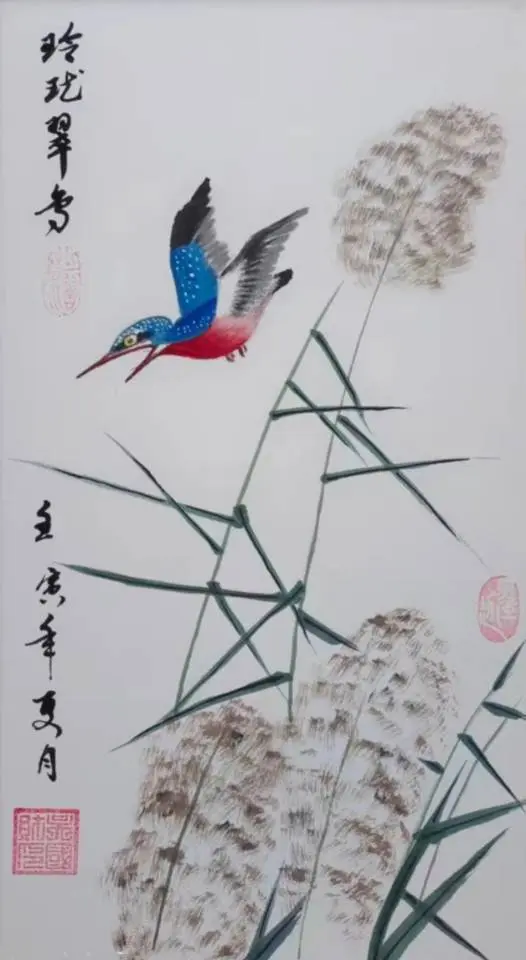 玲珑翠鸟
壬寅年夏月